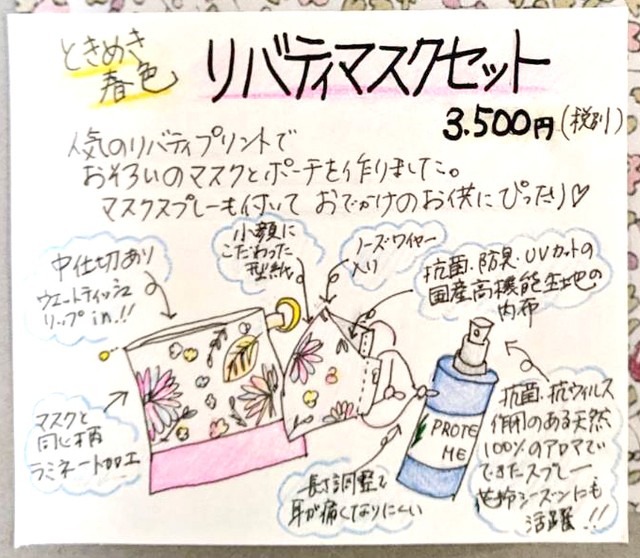 ときめき
春色
リバティマスクセット
3.500円(税別)
人気のリバティプリントで
おそろいのマスクとポーチを作りました。
マスクスプレーも付いて おでかけのお供にぴったり♡
中仕切あり
ウェットティッシュ
リップin!!
小顔に
こだわった
型紙
ノーズワイヤー
入り
抗菌.防臭.UVカットの
国産高機能生地の
内布
マスクと
同じ柄
ラミネート加工
長さ調整で
耳が痛くなりにくい
PROTE
ME
抗菌.抗ウィルス
作用のある天然
100%のアロマで
できたスプレー
花粉シーズンにも
活躍!!